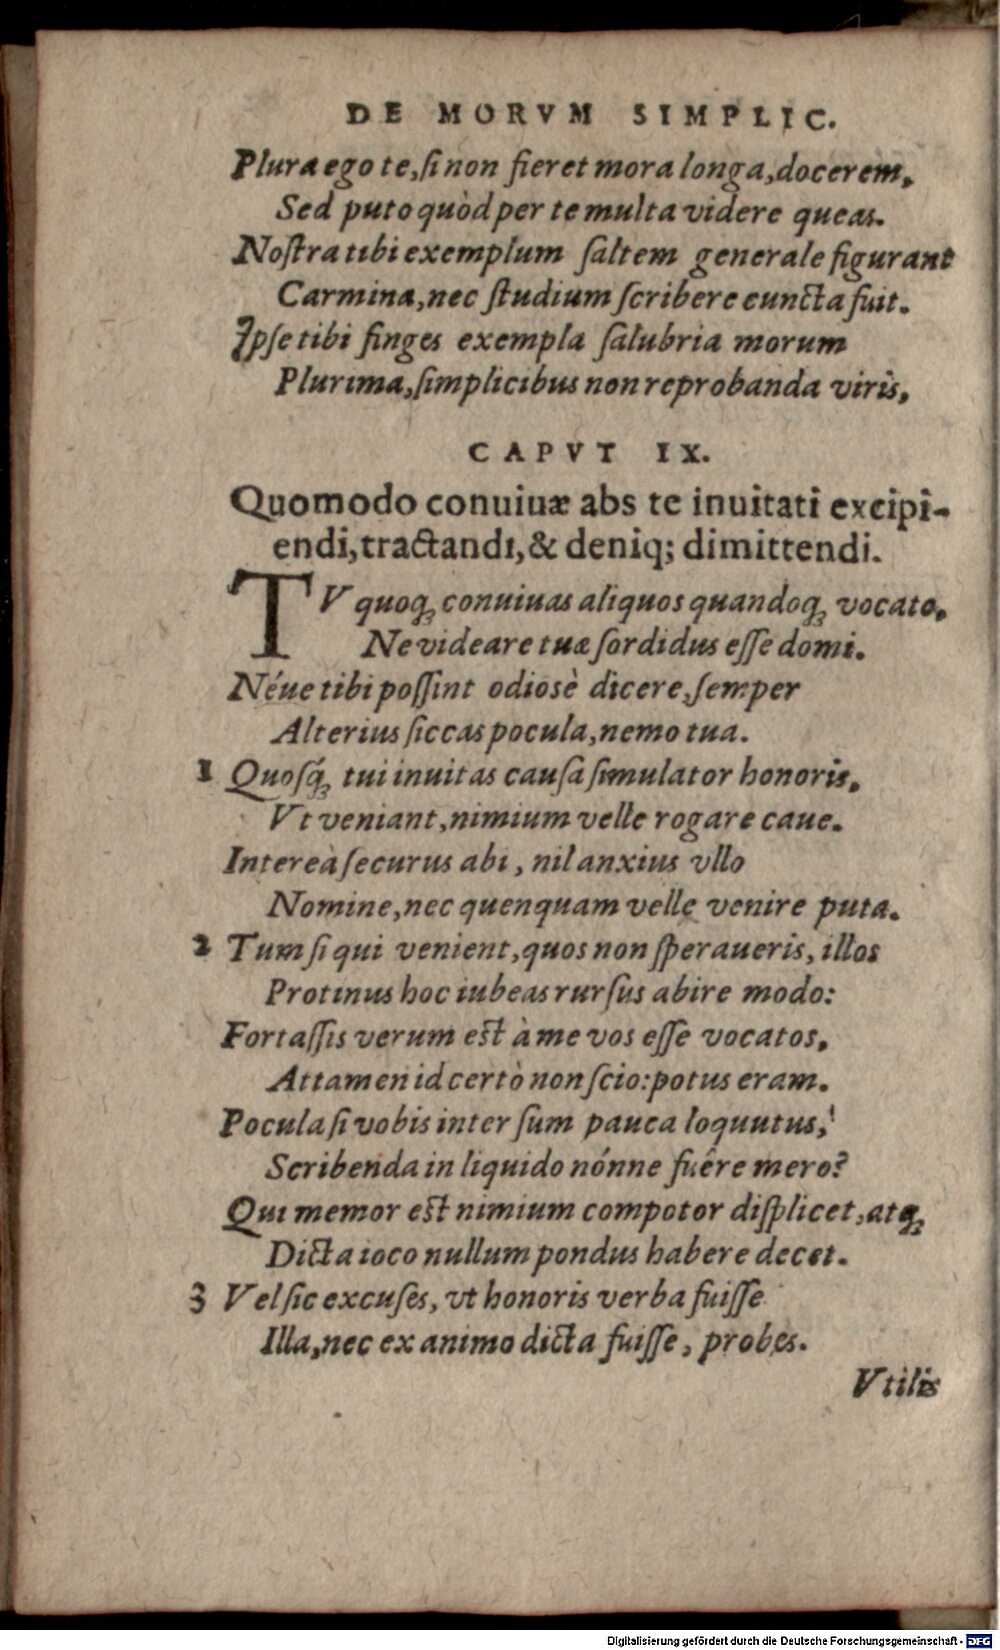 DE MORVM SIMPLIC.
Plura ego te, ſi non fieret mora longa, docerem,
Sed puto quòd per te multa videre queas.
Noſtra tibi exemplum ſaltem generale figurant
Carmina, nec ſtudium ſcribere cuncta fuit.
Ipſe tibi finges exempla ſalubria morum
Plurima, ſimplicibus non reprobanda viris,
CAPVT IX.
Quomodo conuiuæ abs te inuitati excipi-
endi, tractandi, & deniq; dimittendi.
TV quoq; conuiuas aliquos quandoq; vocato,
Ne videare tuæ ſordidus eſſe domi.
Néue tibi poſſint odiosè dicere, ſemper
Alterius ſiccas pocula, nemo tua.
1 Quoſq́; tui inuitas cauſa ſimulator honoris,
Vt veniant, nimium velle rogare caue.
Intereà ſecurus abi, nil anxius vllo
Nomine, nec quenquam velle venire puta.
2 Tum ſi qui venient, quos non ſperaueris, illos
Protinus hoc iubeas rurſus abire modo:
Fortaſſis verum eſt à me vos eſſe vocatos,
Attamen id certò non ſcio: potus eram.
Pocula ſi vobis inter ſum pauca loquutus,
Scribenda in liquido nónne fuêre mero?
Qui memor eſt nimium compotor diſplicet, atq;
Dicta ioco nullum pondus habere decet.
3 Vel ſic excuſes, vt honoris verba fuiſſe
Illa, nec ex animo dicta fuiſſe, probes.
Vtilis
Digitalisierung gefördert durch die Deutsche Forschungsgemeinschaft - DFG